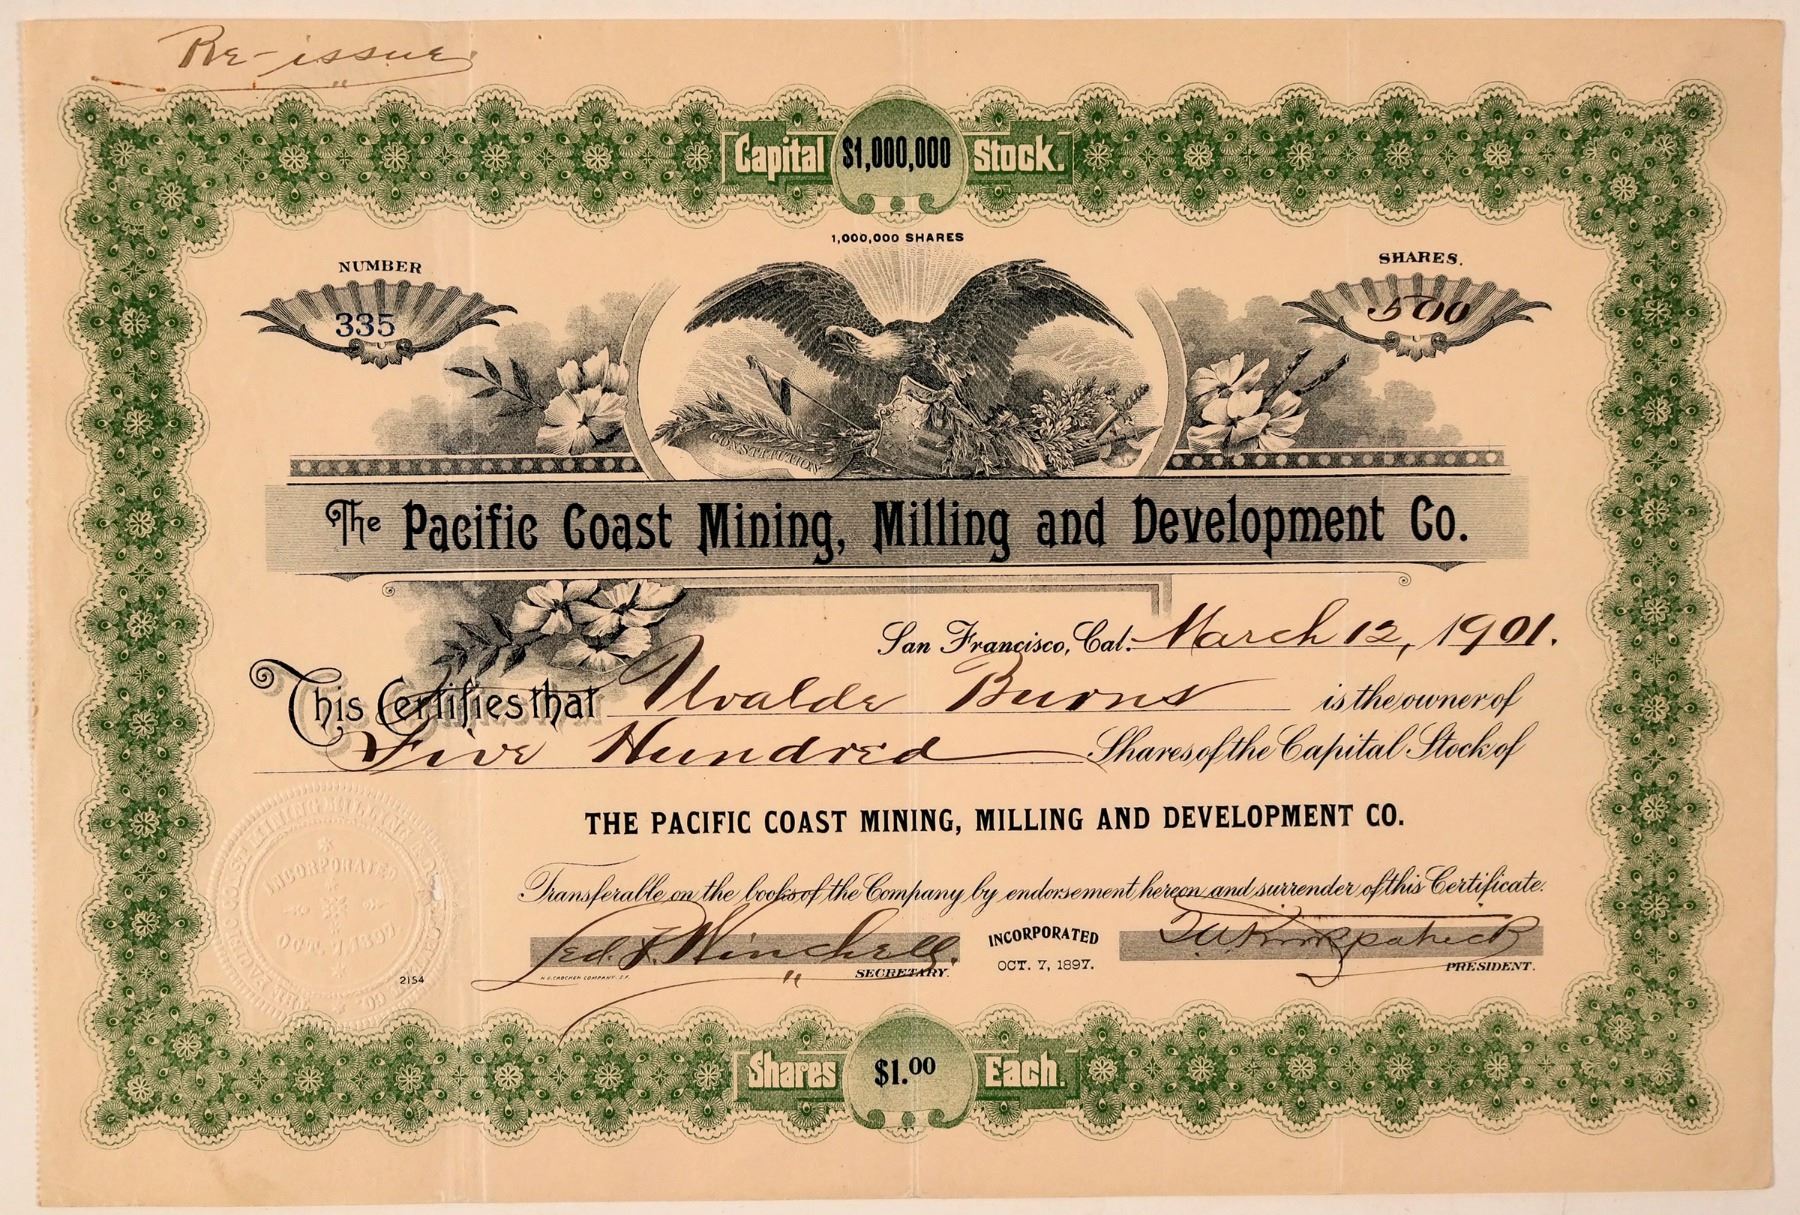 Re-issue
Capital $1,000,000 Stock.
1,000,000 SHARES
NUMBER
335
SHARES.
500
CONSTITUTION
The Pacific Coast Mining, Milling and Development Co.
San Francisco, Cal. March 12, 1901.
This Certifies that Uvalde Burns is the owner of
Five Hundred Shares of the Capital Stock of
THE PACIFIC COAST MINING, MILLING AND DEVELOPMENT CO.
Transferable on the books of the Company by endorsement hereon and surrender of this Certificate.
F. Winchell.
SECRETARY.
H.S. CROCKER COMPANY. S.F.
INCORPORATED
OCT. 7, 1897.
Kirkpatrick
PRESIDENT.
INCORPORATED
OCT. 7, 1897
2154
Shares $1.00 Each.